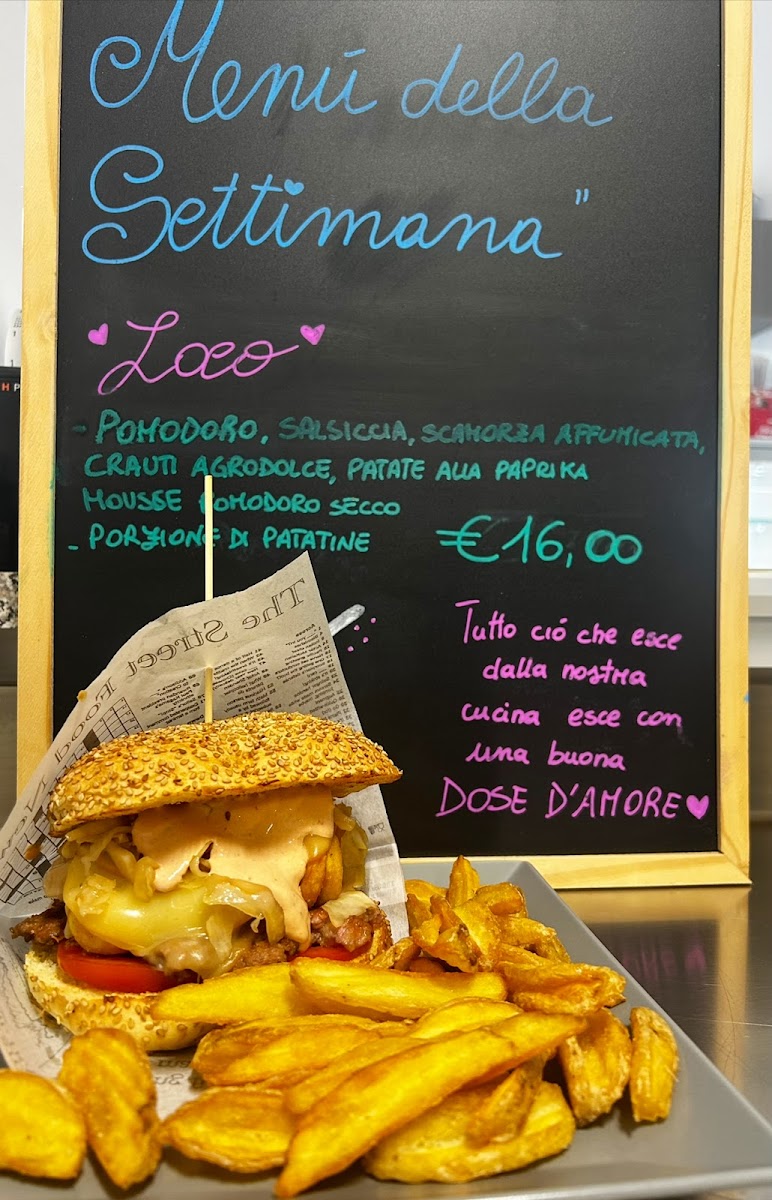 Menú della
Settimana"
"Loco"
- POMODORO, SALSICCIA, SCAMORZA AFFUMICATA,
CRAUTI AGRODOLCE, PATATE ALLA PAPRIKA
MOUSSE POMODORO SECCO
- PORZIONE DI PATATINE
€16,00
Tutto ció che esce
dalla nostra
cucina esce con
una buona
DOSE D'AMORE
The Street
Food